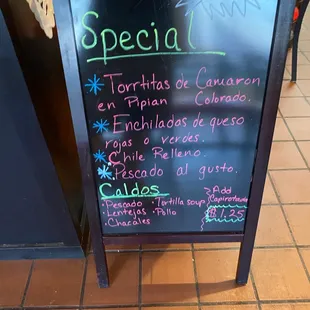 Special
* Torrtitas de Camaron
en Pipian Colorado.
* Enchiladas de queso
rojas o verdes.
* Chile Relleno.
* Pescado al gusto.
Caldos
• Pescado • Tortilla soup
• Lentejas • Pollo
• Chacales
Add
Capirotada
$1.25